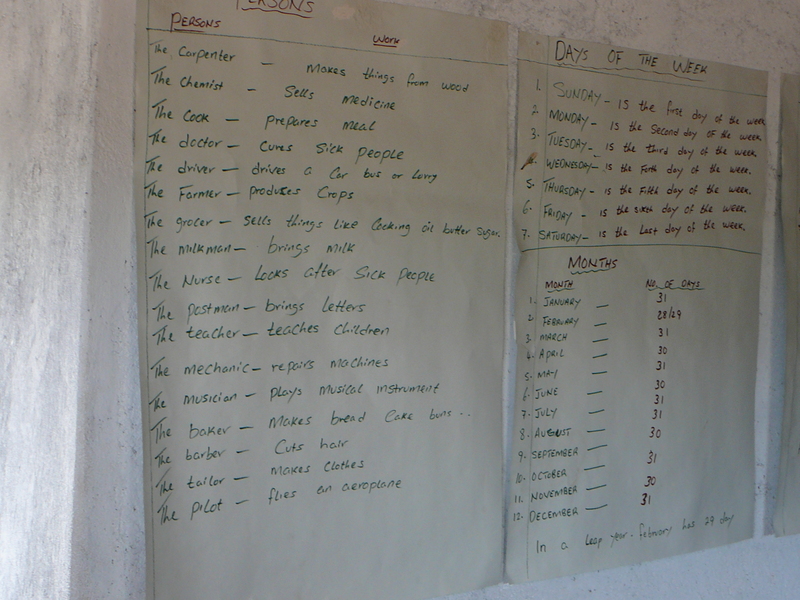 PERSONS
PERSONS
Work
The Carpenter — Makes things from wood
The Chemist — Sells medicine
The Cook — prepares meal
The doctor — Cures Sick People
The driver — drives a Car bus or lorry
The Farmer — produces Crops
The grocer — sells things like Cooking oil butter Sugar.
The Milkman — brings Milk
The Nurse — Looks after Sick People
The postman — brings Letters
The teacher — teaches Children
The mechanic — repairs machines
The musician — plays Musical Instrument
The baker — Makes bread Cake buns ..
The barber — Cuts hair
The tailor — makes Clothes
The pilot — flies an aeroplane
DAYS OF THE WEEK
1. SUNDAY — is the first day of the week
2 MONDAY — is the Second day of the week
3. TUESDAY — is the third day of the week.
WEDNESDAY — is the Forth day of the week.
5. THURSDAY — is the Fifth day of the week.
6. FRIDAY — is the sixth day of the week.
7. SATURDAY — is the Last day of the week.
MONTHS
MONTH NO. OF DAYS
1. JANUARY — 31
2. FEBRUARY — 28/29
3. MARCH — 31
4. APRIL — 30
5. MAY — 31
6. JUNE — 30
7. JULY — 31
8. AUGUST — 31
9. SEPTEMBER — 30
10. OCTOBER — 31
11. NOVEMBER — 30
12. DECEMBER — 31
In a leap year. february has 29 day